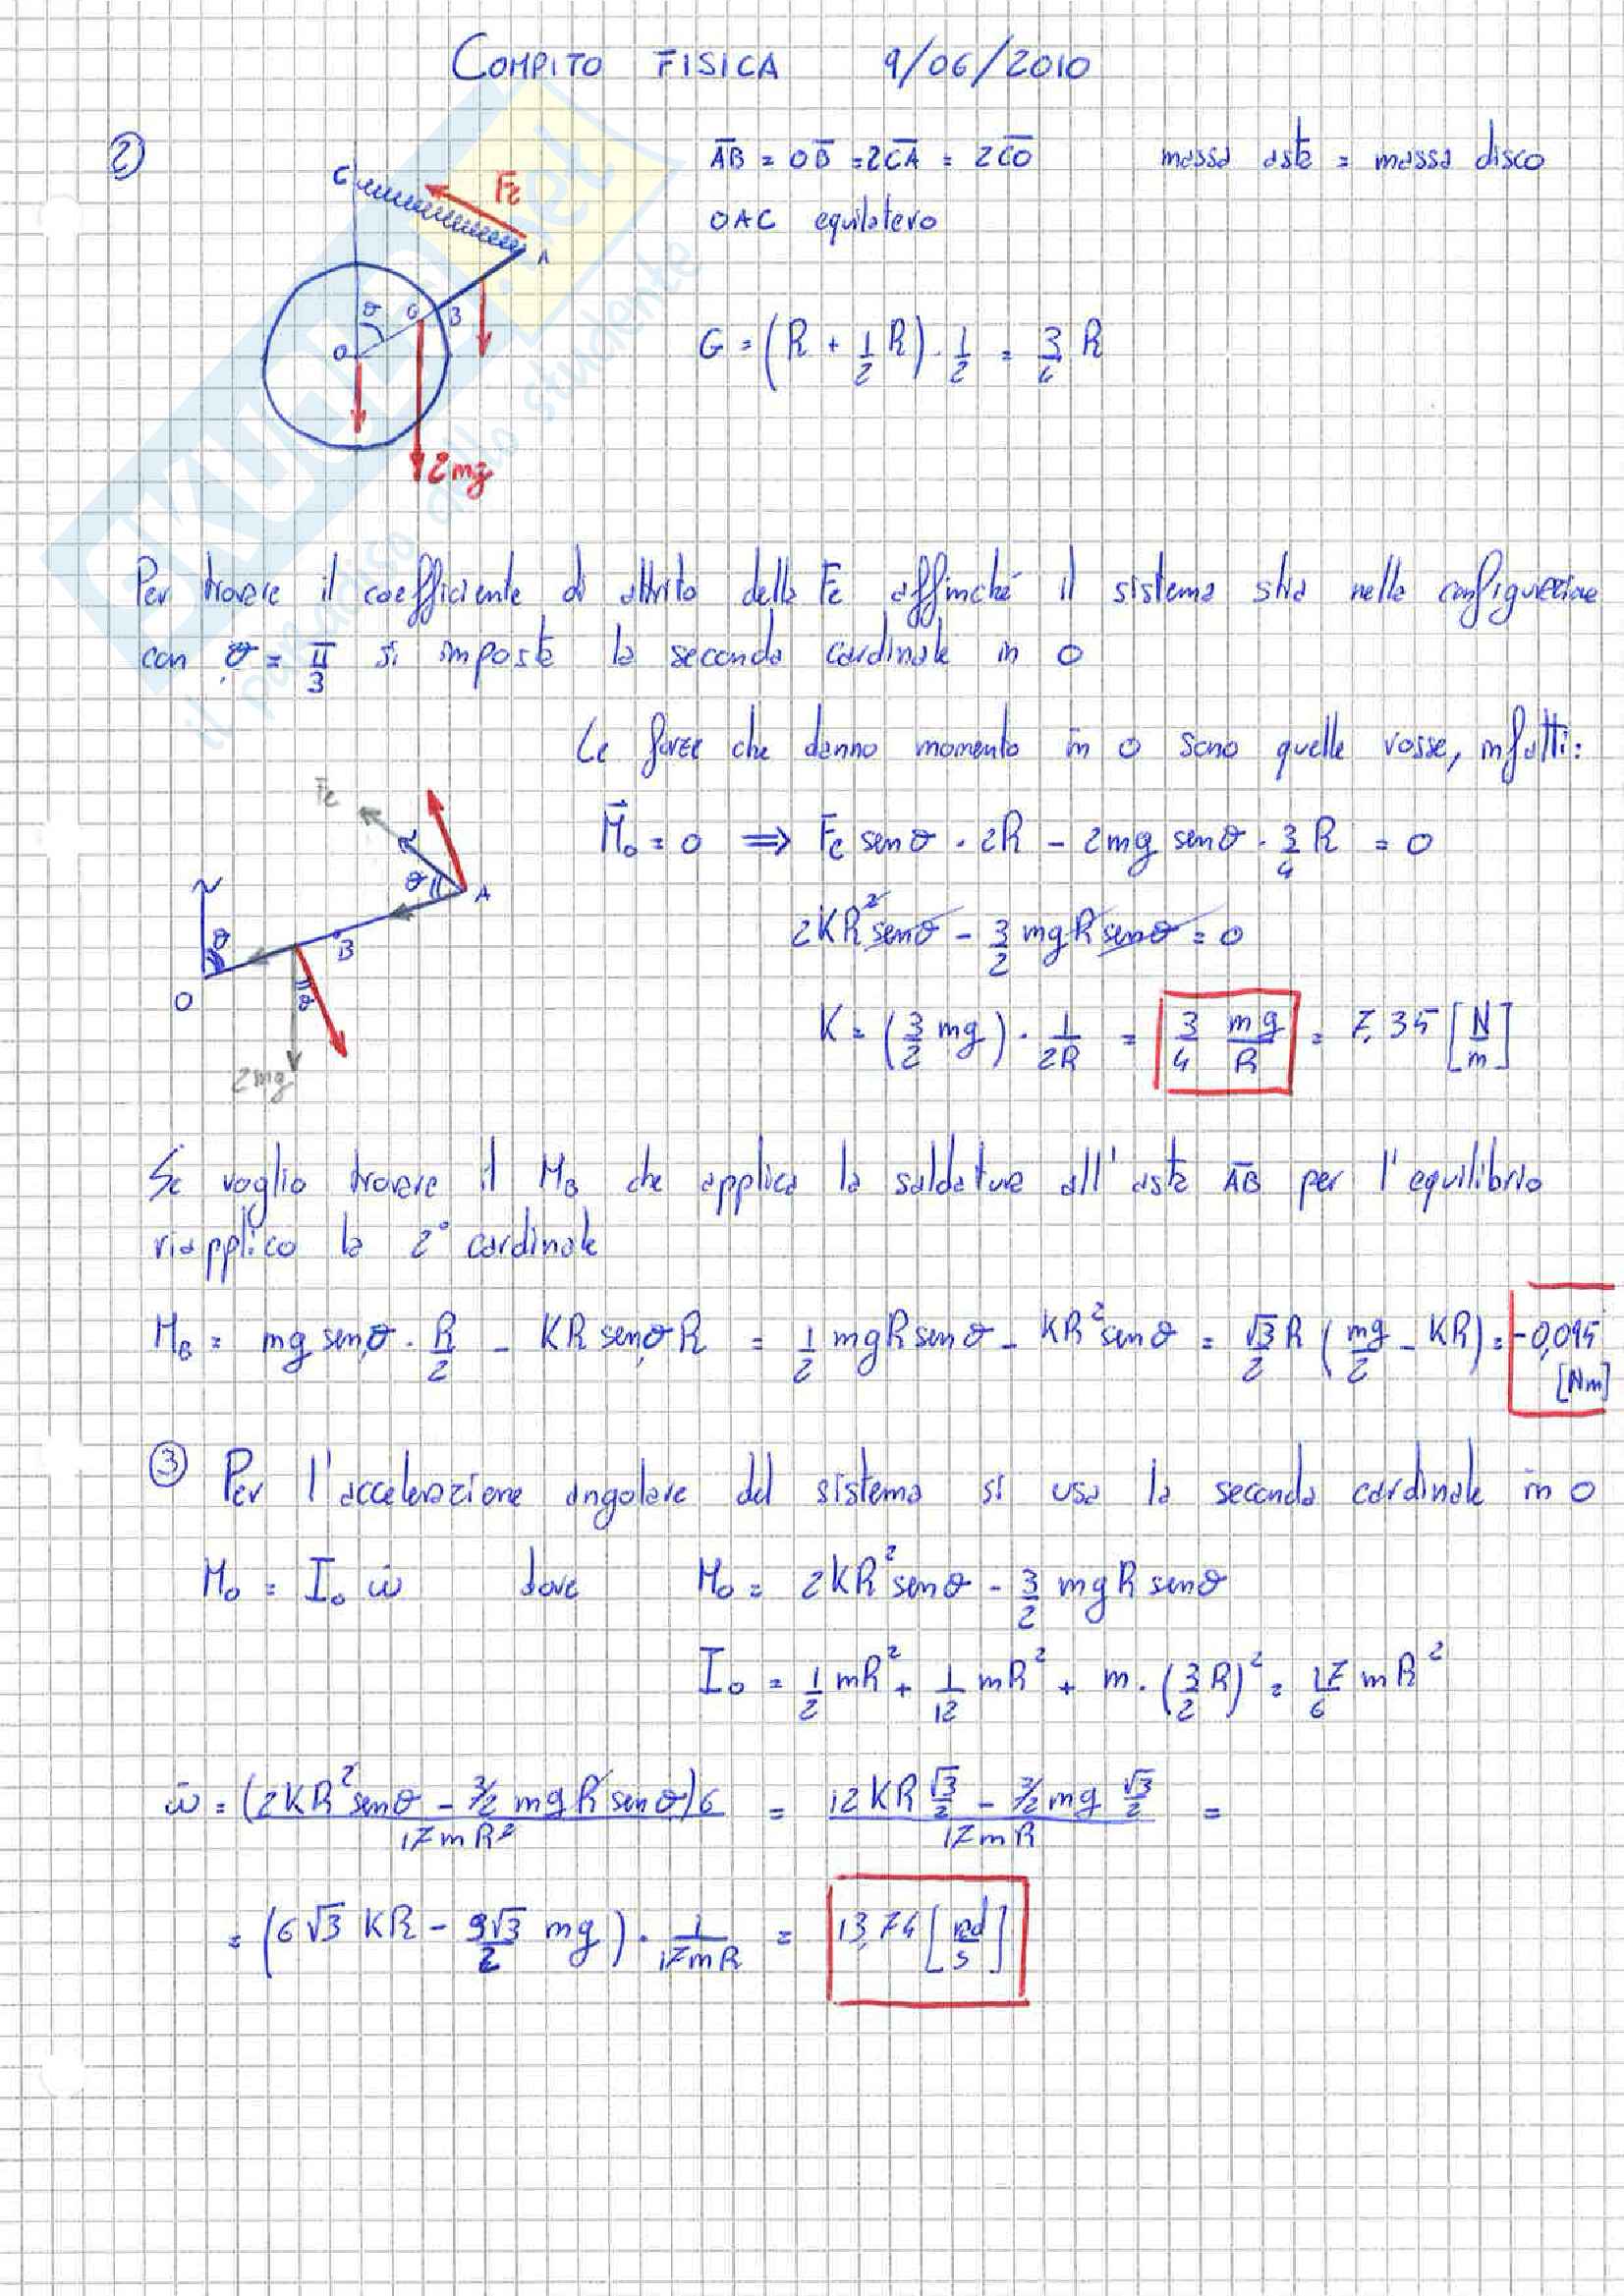 COMPITO FISICA 9/06/2010
② AB = OB = 2CA = 2CO massa asta = massa disco
OAC equilatero
C Fe A
G = (R + 1/2 R) · 1/2 = 3/4 R
θ G B
O
2mg
Per trovare il coefficiente di attrito della Fe affinché il sistema stia nella configurazione
con θ = π/3 si imposta la seconda cardinale in O
Le forze che danno momento in O sono quelle rosse, infatti:
Fe
M₀ = 0 ⟹ Fe senθ · 2R - 2mg senθ · 3/4 R = 0
θ A
2KR² senθ - 3/2 mgR senθ = 0
θ B
O θ
K = (3/2 mg) · 1/2R = 3/4 mg/R = 7,35 [N/m]
2mg
Se voglio trovare il M_B che applica la saldatura all'asta AB per l'equilibrio
riapplico la 2° cardinale
M_B = mg senθ · R/2 - KR senθ R = 1/2 mgR senθ - KR² senθ = √3/2 R (mg/2 - KR) = -0,095 [Nm]
③ Per l'accelerazione angolare del sistema si usa la seconda cardinale in O
M₀ = I₀ ω̇ dove M₀ = 2KR² senθ - 3/2 mgR senθ
I₀ = 1/2 mR² + 1/12 mR² + m · (3/2 R)² = 17/6 mR²
ω̇ = (2KR² senθ - 3/2 mgR senθ)6 / 17mR² = 12KR √3/2 - 3/2 mg √3/2 / 17mR =
= (6√3 KR - 9√3/2 mg) · 1/17mR = 13,74 [rad/s]
SKUOLA.net
il paradiso dello studente